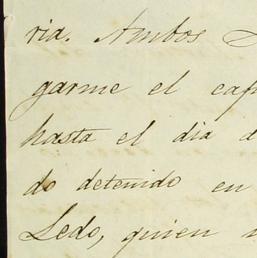 ria. Ambos
garme el
hasta el dia
do detenido en
Ledo, quien